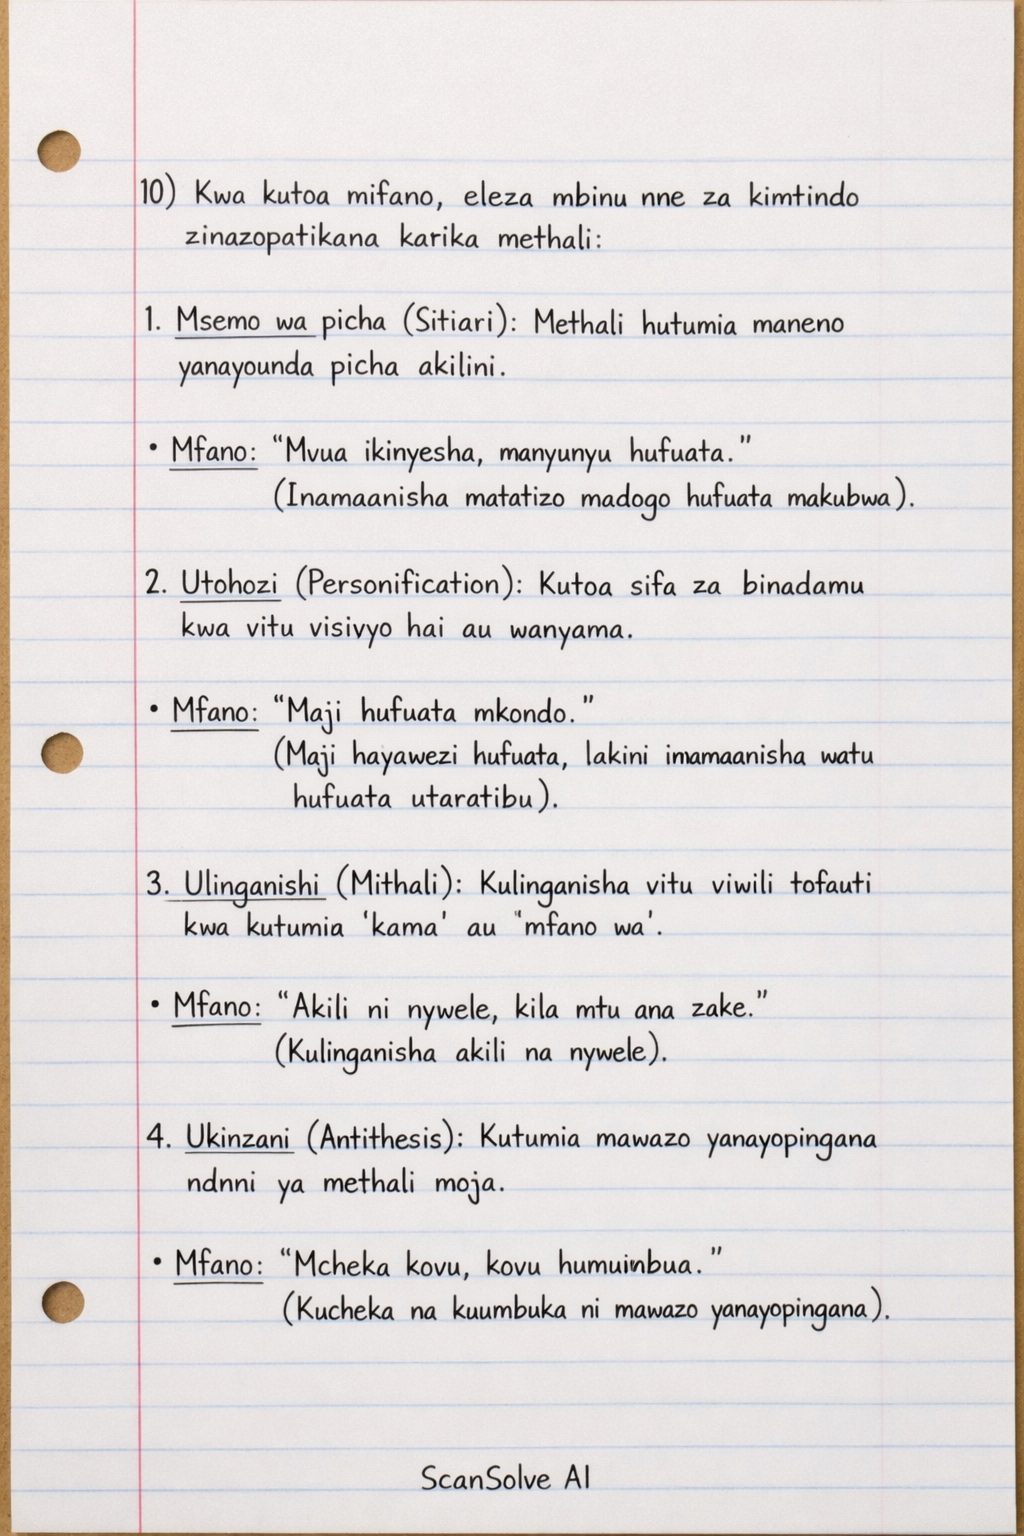 10) Kwa kutoa mifano, eleza mbinu nne za kimtindo
zinazopatikana karika methali:
1. Msemo wa picha (Sitiari): Methali hutumia maneno
yanayounda picha akilini.
• Mfano: "Mvua ikinyesha, manyunyu hufuata."
(Inamaanisha matatizo madogo hufuata makubwa).
2. Utohozi (Personification): Kutoa sifa za binadamu
kwa vitu visivyo hai au wanyama.
• Mfano: "Maji hufuata mkondo."
(Maji hayawezi hufuata, lakini imamaanisha watu
hufuata utaratibu).
3. Ulinganishi (Mithali): Kulinganisha vitu viwili tofauti
kwa kutumia 'kama' au "mfano wa'.
• Mfano: "Akili ni nywele, kila mtu ana zake."
(Kulinganisha akili na nywele).
4. Ukinzani (Antithesis): Kutumia mawazo yanayopingana
ndnni ya methali moja.
• Mfano: "Mcheka kovu, kovu humuinbua."
(Kucheka na kuumbuka ni mawazo yanayopingana).
ScanSolve AI